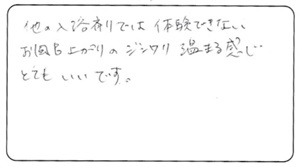 他の入浴剤では体験できない
お風呂上がりのジンワリ温まる感じ
とてもいいです。